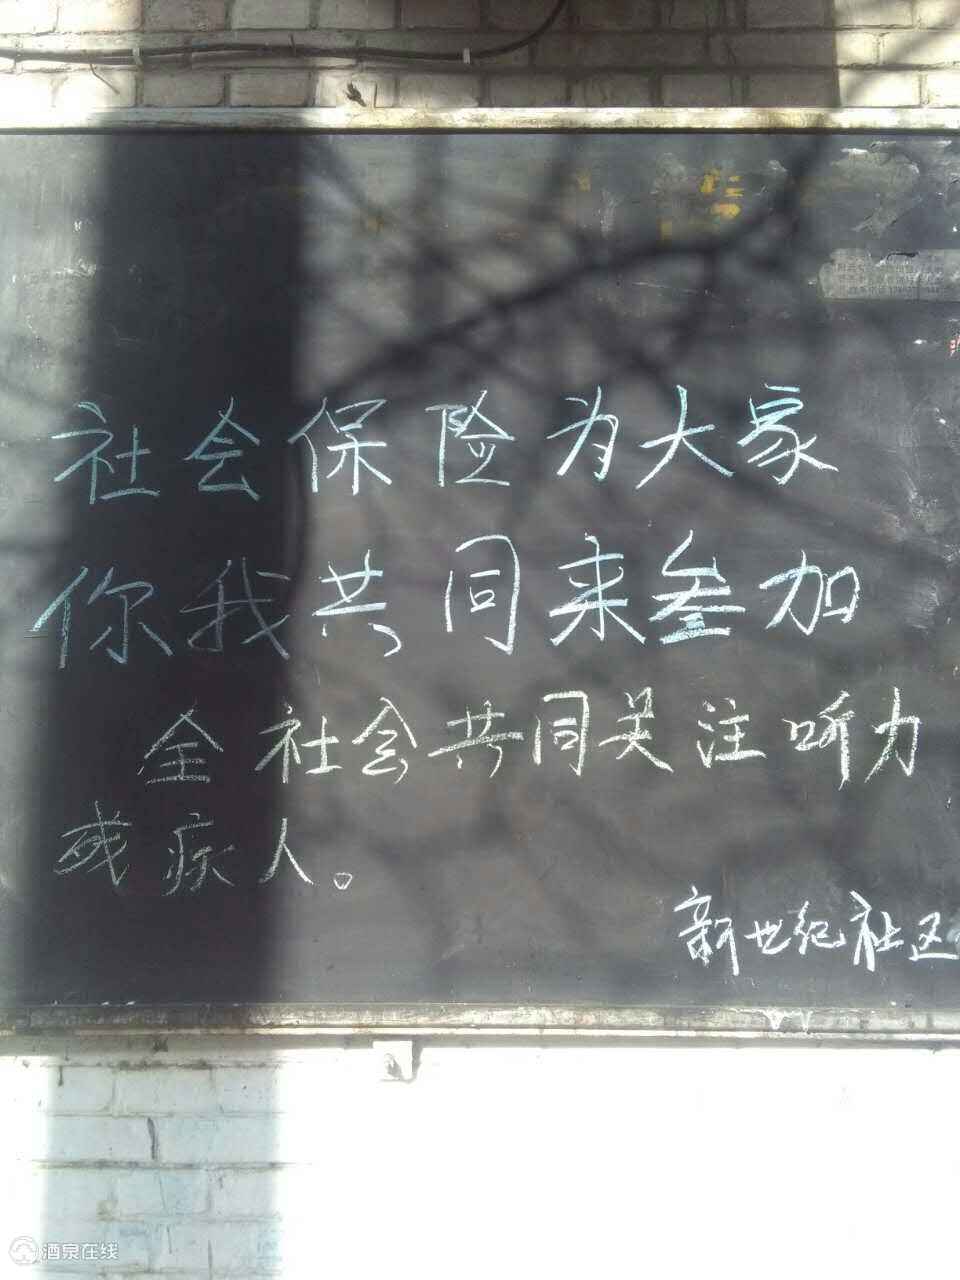 社会保险为大家
你我共同来参加
全社会共同关注听力
残疾人。
新世纪社区
酒泉在线